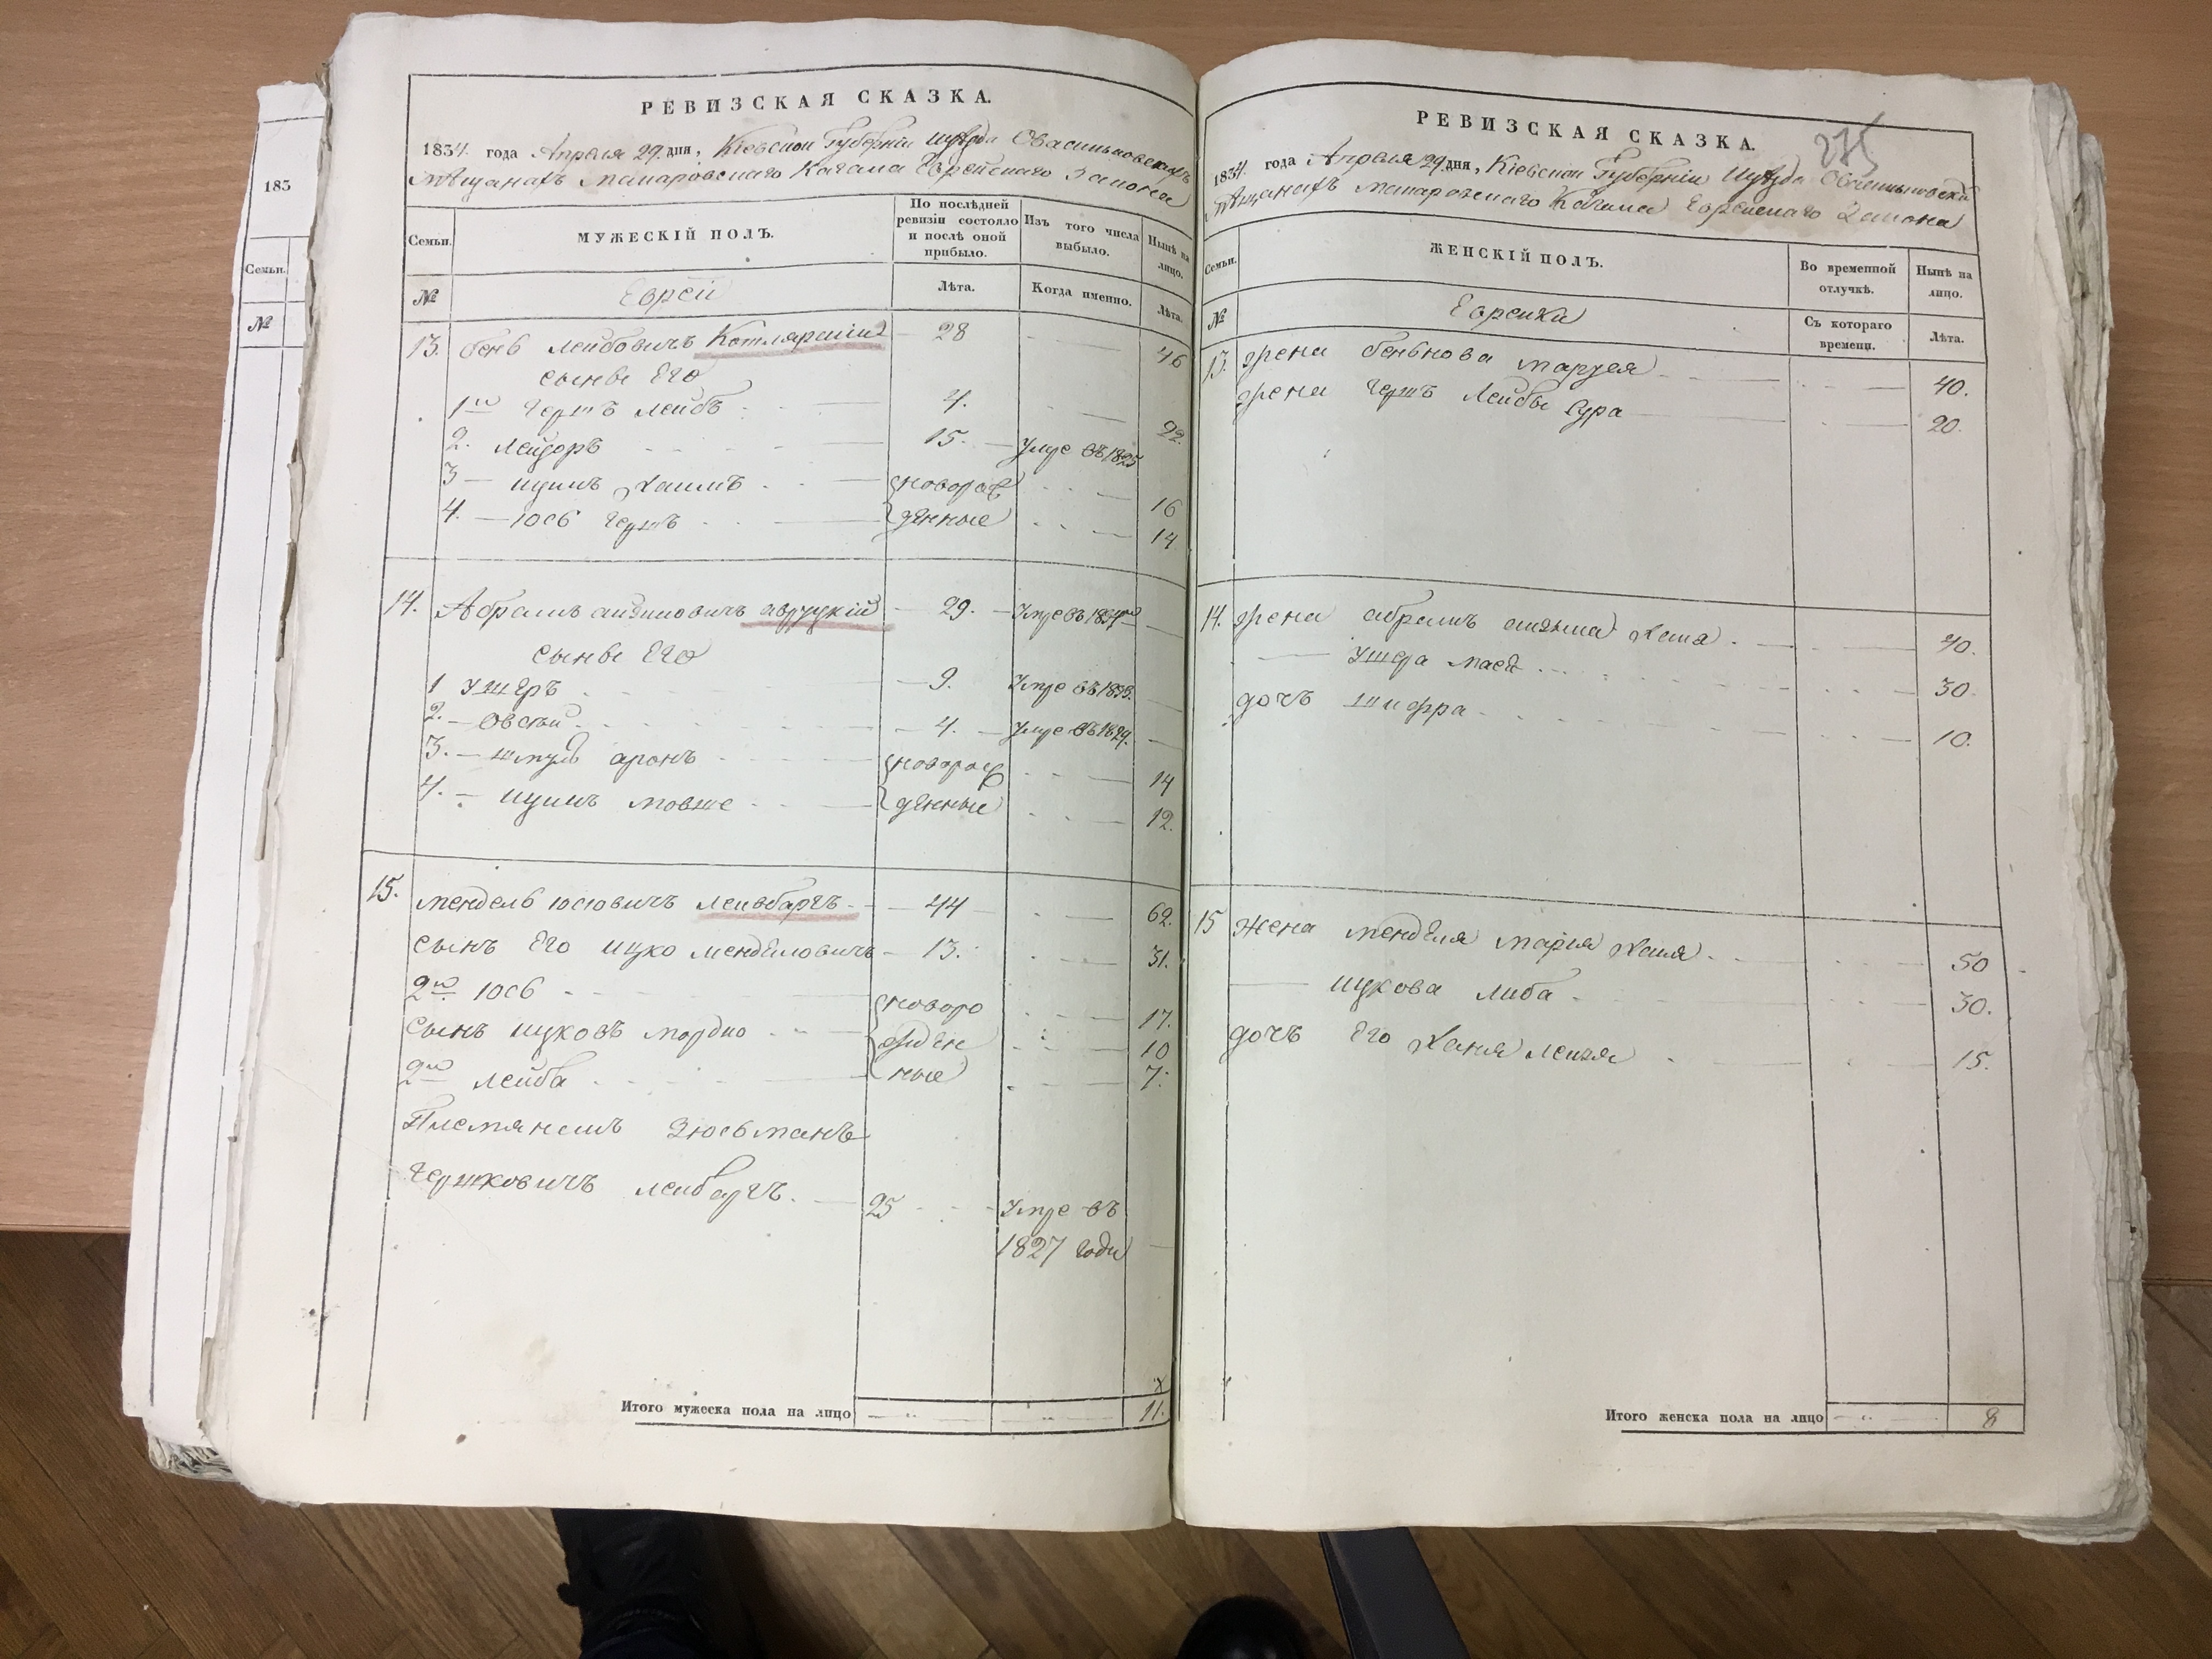 183
Семьи.
№
РЕВИЗСКАЯ СКАЗКА.
1834 года Апреля 29 дня, Кіевской Губерніи
Мещанахъ Макаровского Кагала Еврейскаго Закона
Семьи.
МУЖЕСКІЙ ПОЛЪ.
По послѣдней ревизіи состояло и послѣ оной прибыло.
Изъ того числа выбыло.
Нынѣ на лицо.
№
Еврей
Лѣта.
Когда именно.
Лѣта.
13. бень Лейбовичъ Котлярскій 28 46
сыны Его
1й Гершъ Лейбъ 4. 22.
2. Лейзоръ 15. Умре въ 1825
3 ицикъ Хаимъ новорож 16
4. іось Гершъ денные 14
14. Абрамъ Авруцкій 29. Умре въ 1834
сыны Его
1 Ушеръ 9. Умре въ 1833.
2. Овсей 4. Умре въ 1829.
3. шмуль аронъ новорож 14
4. ицикъ мовше денные 12.
15. мендель іосіовичъ Лейвбаргъ 44 62.
сынъ Его ицко менделовичъ 13. 31.
2й іось новоро 17.
сынъ ицковъ мордко жден 10
2й лейба ные 7.
Племянникъ Зюсьманъ
Гершковичъ Лейбаргъ. 25 Умре въ
1827 годи
х
Итого мужеска пола на лицо 11.
275
РЕВИЗСКАЯ СКАЗКА.
1834 года Апреля 29 дня, Кіевской Губерніи
Мещанахъ Макаровскаго Кагала Еврейскаго Закона
Семьи.
ЖЕНСКІЙ ПОЛЪ.
Во временной отлучкѣ.
Нынѣ на лицо.
№
Еврейки
Съ котораго времени.
Лѣта.
13. жена беньнова 40.
жена Гершъ Лейбы Сура 20.
14. жена абрамъ Хана 40.
Ушера 30
дочъ шифра 10.
15 Жена менделя марія Хана 50
ицкова либа 30.
дочъ Его Ханя 15.
Итого женска пола на лицо 8